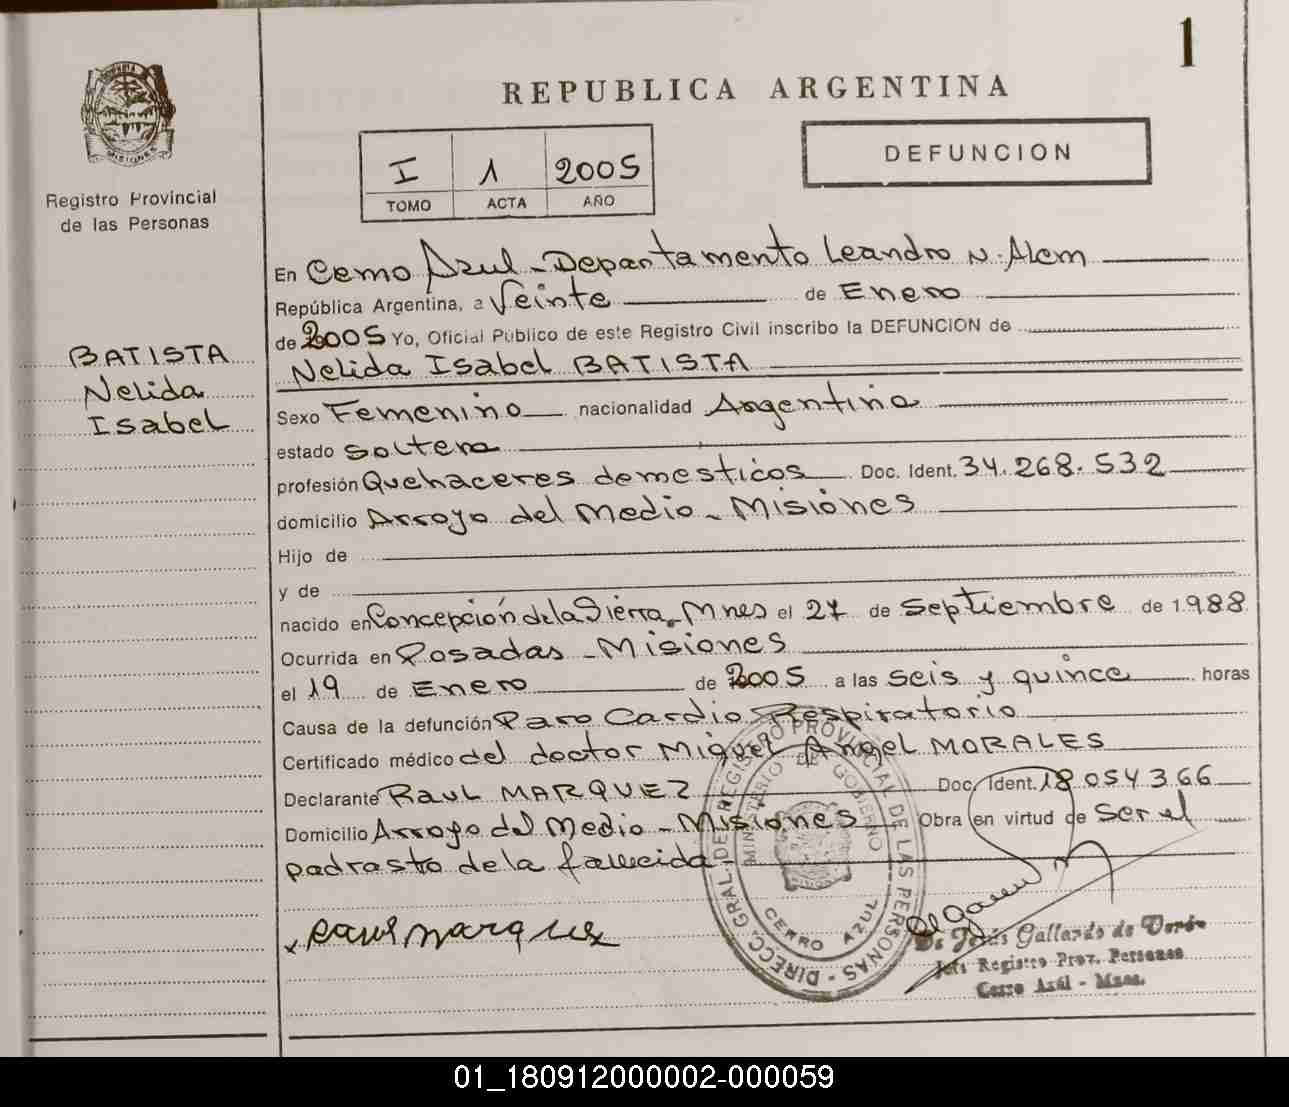 1
REPUBLICA ARGENTINA
I 1 2005
TOMO ACTA AÑO
DEFUNCION
Registro Provincial
de las Personas
BATISTA
Nelida
Isabel
En Cerro Azul - Departamento Leandro N. Alem
República Argentina, a Veinte de Enero
de 2005 Yo, Oficial Público de este Registro Civil inscribo la DEFUNCION de
Nelida Isabel BATISTA
Sexo Femenino nacionalidad Argentina
estado soltera
profesión Quehaceres domesticos Doc. Ident. 34.268.532
domicilio Arroyo del Medio - Misiones
Hijo de
y de
nacido en Concepción de la Sierra, Mnes el 27 de Septiembre de 1.988
Ocurrida en Posadas - Misiones
el 19 de Enero de 2005 a las seis y quince horas
Causa de la defunción Paro Cardio Respiratorio
Certificado médico del doctor Miguel Angel MORALES
Declarante Raul MARQUEZ Doc. Ident. 18.054.366
Domicilio Arroyo del Medio - Misiones Obra en virtud de ser el
padrasto de la fallecida -
Raul Marquez
DIRECC. GRAL. DE REGISTRO PROVINCIAL DE LAS PERSONAS
MINISTERIO DE GOBIERNO
CERRO AZUL
Gallardo de
Jefe Registro Prov. Personas
Cerro Azul - Mnes.
01_180912000002-000059